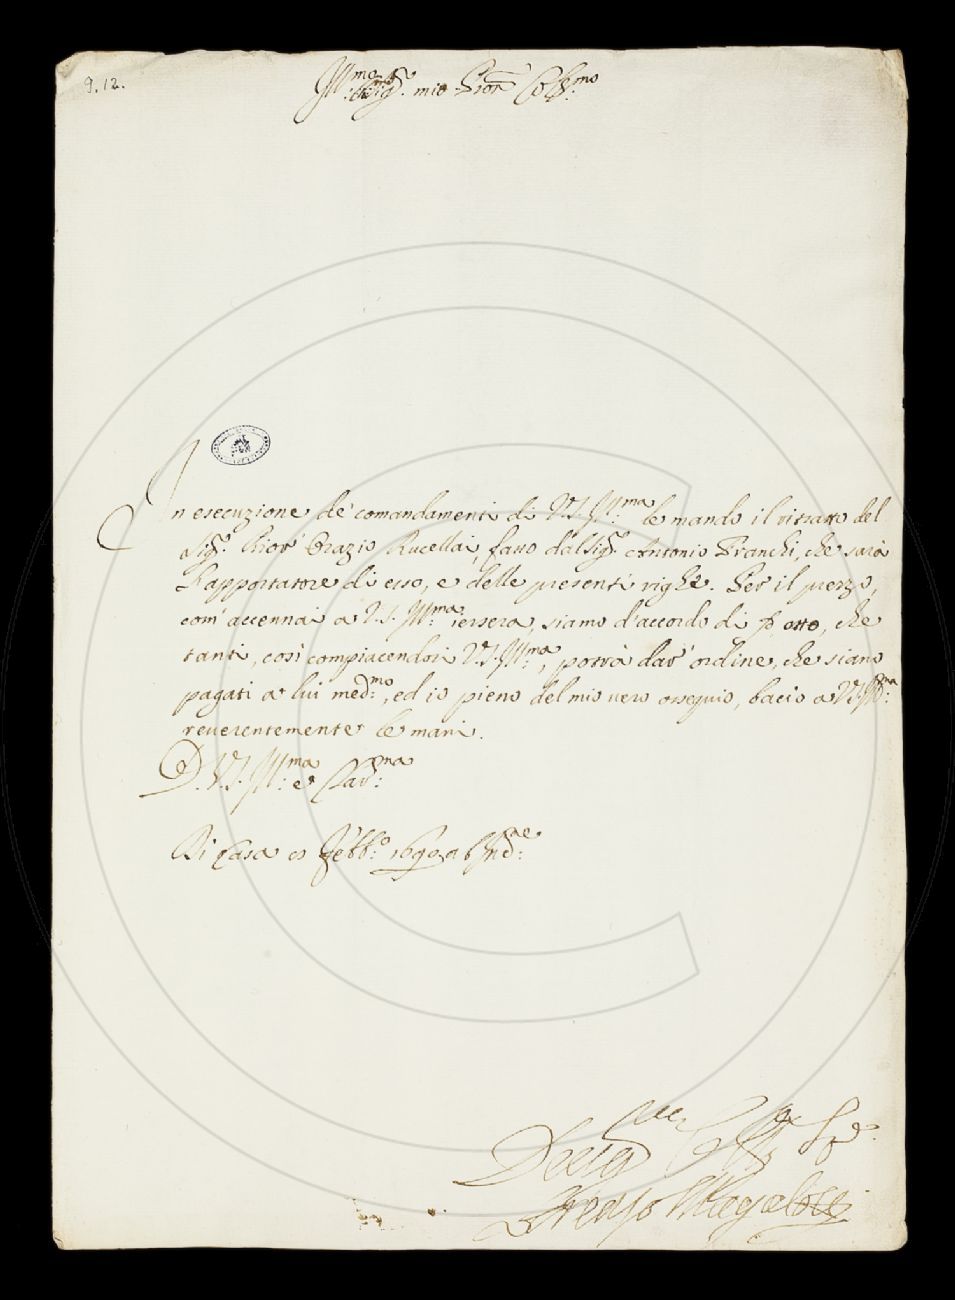 9. 12.
Ill:mo Sig:r mio Pron Col:mo
In esecuzione de' comandamenti di V.S. Ill:ma le mando il ritratto del
Sig:r Prior' Orazio Rucellai, fatto dal Sig:r Antonio Franchi, che sarà
l'apportatore di esso, e delle presenti righe. Per il prezzo,
com' accennai a V.S. Ill:ma iersera, siamo d'accordo di otto, che
tanti, così compiacendosi V.S. Ill:ma, potrà dar' ordine, che siano
pagati a lui med:mo, ed io pieno del mio vero ossequio, bacio a V.S. Ill:ma
reverentemente le mani.
D. V.S. Ill:ma e Clar:ma
Di Casa Febb:o 1690 ab Inc:ne
Magalotti